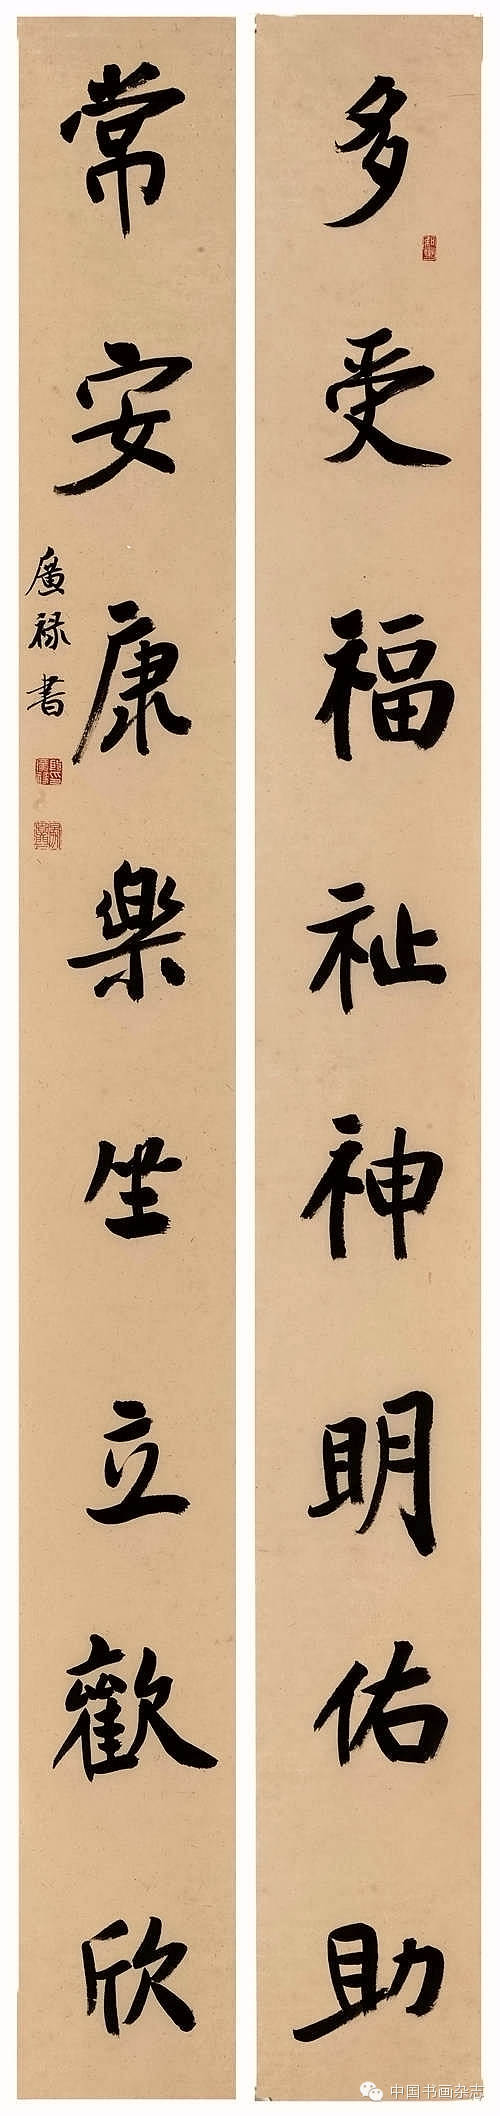 多受福祉神明佑助
常安康樂坐立歡欣
廣祿書
中国书画杂志